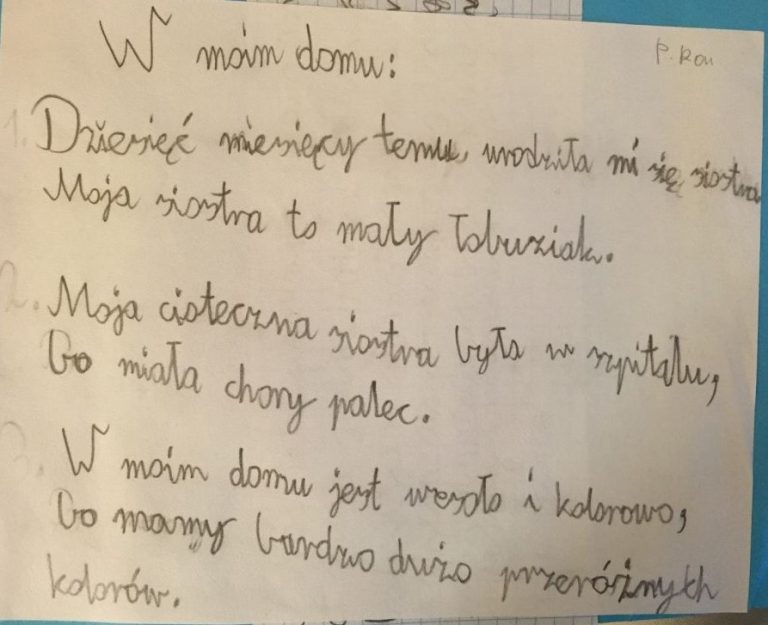 W moim domu:
P. Kou
1. Dziesięć miesięcy temu, urodziła mi się siostra
Moja siostra to mały łobuziak.
2. Moja cioteczna siostra była w szpitalu,
Bo miała chory palec.
3. W moim domu jest wesoło i kolorowo,
Bo mamy bardzo dużo przeróżnych
kolorów.